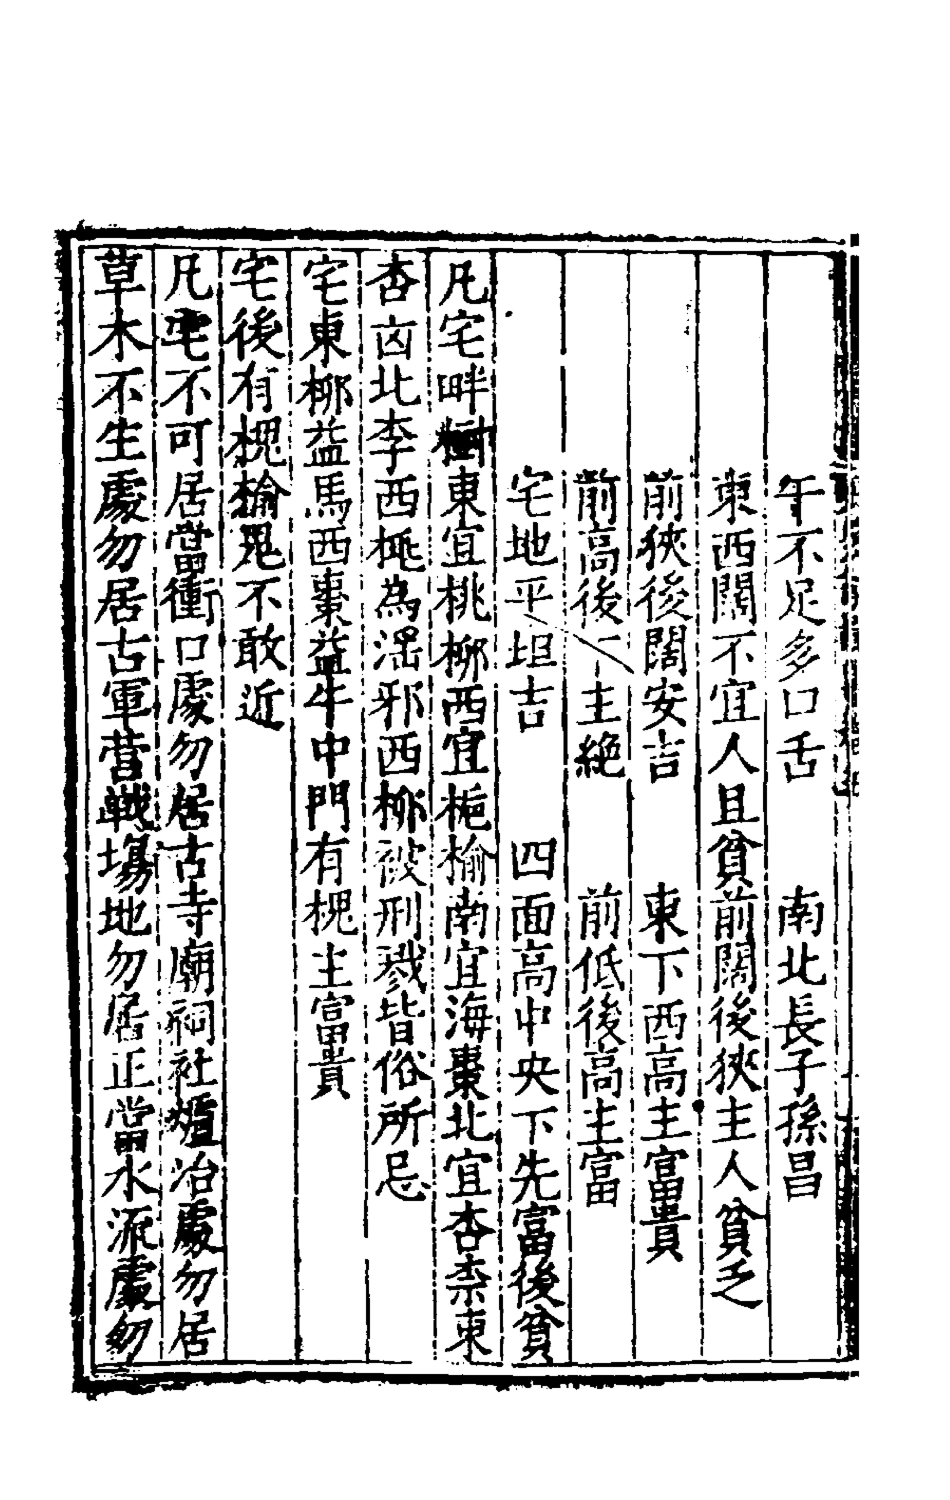 午不足多口舌　南北長子孫昌
東西闊不宜人且貧前闊後狹主人貧乏
前狹後闊安吉　東下西高主富貴
前高後下主絶　前低後高主富
宅地平坦吉　四面高中央下先富後貧
凡宅畔樹東宜桃柳西宜梔榆南宜海棗北宜杏柰東
杏凶北李西桃為淫邪西柳被刑戮皆俗所忌
宅東柳益馬西棗益牛中門有槐主富貴
宅後有槐榆鬼不敢近
凡宅不可居當衝口處勿居古寺廟祠社爐冶處勿居
草木不生處勿居古軍營戰場地勿居正當水流處勿